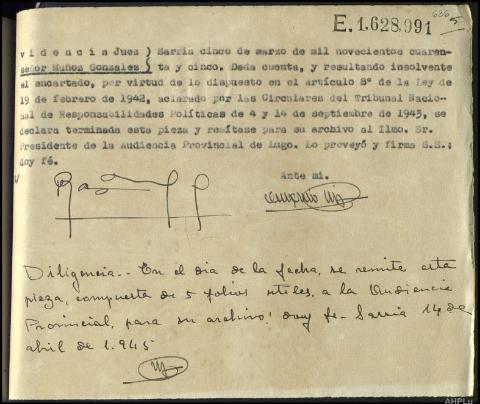 E.1.628.991
videncia Juez ) Sarria cinco de marzo de mil novecientos cuaren-
señor Muñoz Gonzales ) ta y cinco. Dada cuenta, y resultando insolvente
el encartado, por virtud de lo dispuesto en el artículo 8º de la Ley de
19 de febrero de 1942, aclarado por las Circulares del Tribunal Nacio-
nal de Responsabilidades Políticas de 4 y 14 de septiembre de 1943, se
declara terminada esta pieza y remítase para su archivo al Ilmo. Sr.
Presidente de la Audiencia Provincial de Lugo. Lo proveyó y firma S.S.;
doy fé.
Ante mi.
Diligencia.- En el dia de la fecha, se remite esta
pieza, compuesta de 5 folios utiles, a la Audiencia
Provincial, para su archivo; doy fe- Sarria 14 de
abril de 1.945
AHPLu